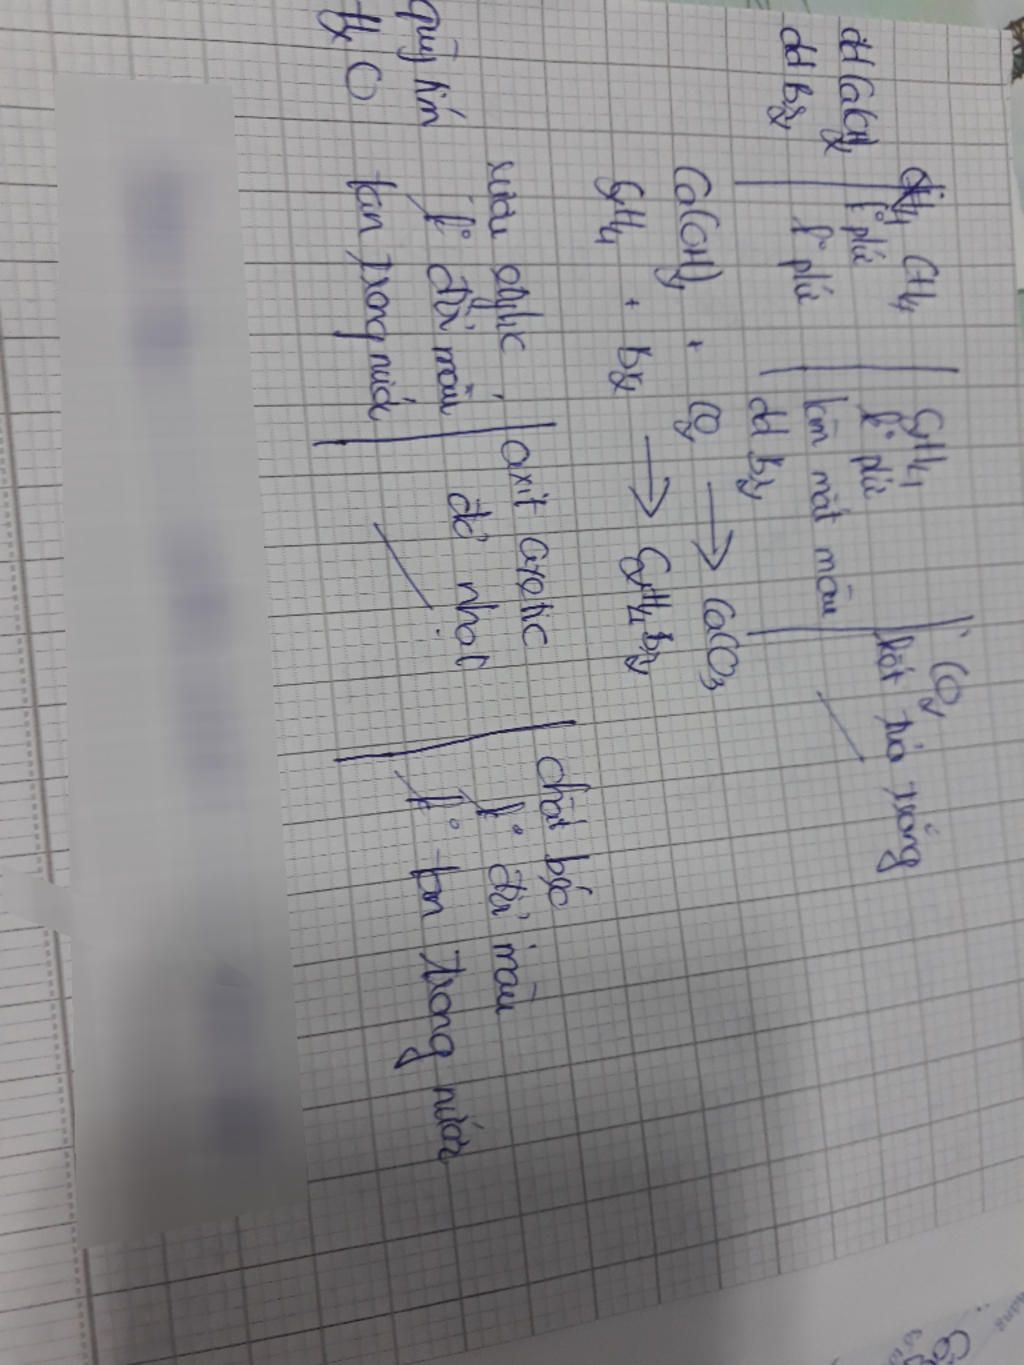 CH4 | C2H4 | CO2
dd Ca(OH)2 k° pứ | k° pứ | kết tủa trắng
dd Br2 k° pứ | làm mất màu
dd Br2
Ca(OH)2 + CO2 → CaCO3
C2H4 + Br2 → C2H4Br2
rượu etylic | axit axetic | chất béo
quỳ tím k° đổi màu | đỏ nhạt | k° đổi màu
H2O tan trong nước | k° tan trong nước